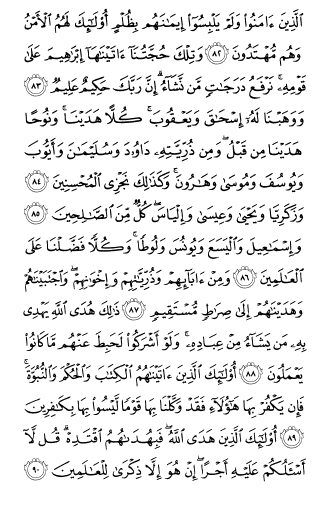 الَّذِينَ ءَامَنُوا وَلَمْ يَلْبِسُوٓا إِيمَٰنَهُم بِظُلْمٍ أُو۟لَٰٓئِكَ لَهُمُ الْأَمْنُ
وَهُم مُّهْتَدُونَ ﴿٨٢﴾ وَتِلْكَ حُجَّتُنَآ ءَاتَيْنَٰهَآ إِبْرَٰهِيمَ عَلَىٰ
قَوْمِهِۦ ۚ نَرْفَعُ دَرَجَٰتٍ مَّن نَّشَآءُ ۗ إِنَّ رَبَّكَ حَكِيمٌ عَلِيمٌ ﴿٨٣﴾
وَوَهَبْنَا لَهُۥٓ إِسْحَٰقَ وَيَعْقُوبَ ۚ كُلًّا هَدَيْنَا ۚ وَنُوحًا
هَدَيْنَا مِن قَبْلُ ۖ وَمِن ذُرِّيَّتِهِۦ دَاوُۥدَ وَسُلَيْمَٰنَ وَأَيُّوبَ
وَيُوسُفَ وَمُوسَىٰ وَهَٰرُونَ ۚ وَكَذَٰلِكَ نَجْزِى الْمُحْسِنِينَ ﴿٨٤﴾
وَزَكَرِيَّا وَيَحْيَىٰ وَعِيسَىٰ وَإِلْيَاسَ ۖ كُلٌّ مِّنَ الصَّٰلِحِينَ ﴿٨٥﴾
وَإِسْمَٰعِيلَ وَالْيَسَعَ وَيُونُسَ وَلُوطًا ۚ وَكُلًّا فَضَّلْنَا عَلَى
الْعَٰلَمِينَ ﴿٨٦﴾ وَمِنْ ءَابَآئِهِمْ وَذُرِّيَّٰتِهِمْ وَإِخْوَٰنِهِمْ ۖ وَاجْتَبَيْنَٰهُمْ
وَهَدَيْنَٰهُمْ إِلَىٰ صِرَٰطٍ مُّسْتَقِيمٍ ﴿٨٧﴾ ذَٰلِكَ هُدَى اللَّهِ يَهْدِى
بِهِۦ مَن يَشَآءُ مِنْ عِبَادِهِۦ ۚ وَلَوْ أَشْرَكُوا لَحَبِطَ عَنْهُم مَّا كَانُوا
يَعْمَلُونَ ﴿٨٨﴾ أُو۟لَٰٓئِكَ الَّذِينَ ءَاتَيْنَٰهُمُ الْكِتَٰبَ وَالْحُكْمَ وَالنُّبُوَّةَ ۚ
فَإِن يَكْفُرْ بِهَا هَٰٓؤُلَآءِ فَقَدْ وَكَّلْنَا بِهَا قَوْمًا لَّيْسُوا بِهَا بِكَٰفِرِينَ
﴿٨٩﴾ أُو۟لَٰٓئِكَ الَّذِينَ هَدَى اللَّهُ ۖ فَبِهُدَىٰهُمُ اقْتَدِهْ ۗ قُل لَّآ
أَسْـَٔلُكُمْ عَلَيْهِ أَجْرًا ۖ إِنْ هُوَ إِلَّا ذِكْرَىٰ لِلْعَٰلَمِينَ ﴿٩٠﴾